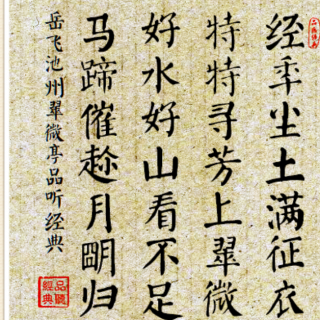 经年尘土满征衣
特特寻芳上翠微
好水好山看不足
马蹄催趁月明归
岳飞池州翠微亭品听经典
品聽
經典